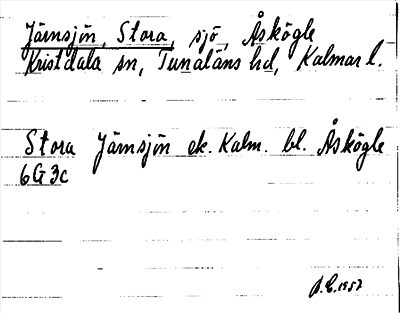 Järnsjön, Stora, sjö, Åskögle
Kristdala sn, Tunaläns hd, Kalmar l.
Stora Järnsjön ek. Kalm. bl. Åskögle
6G3c
1957